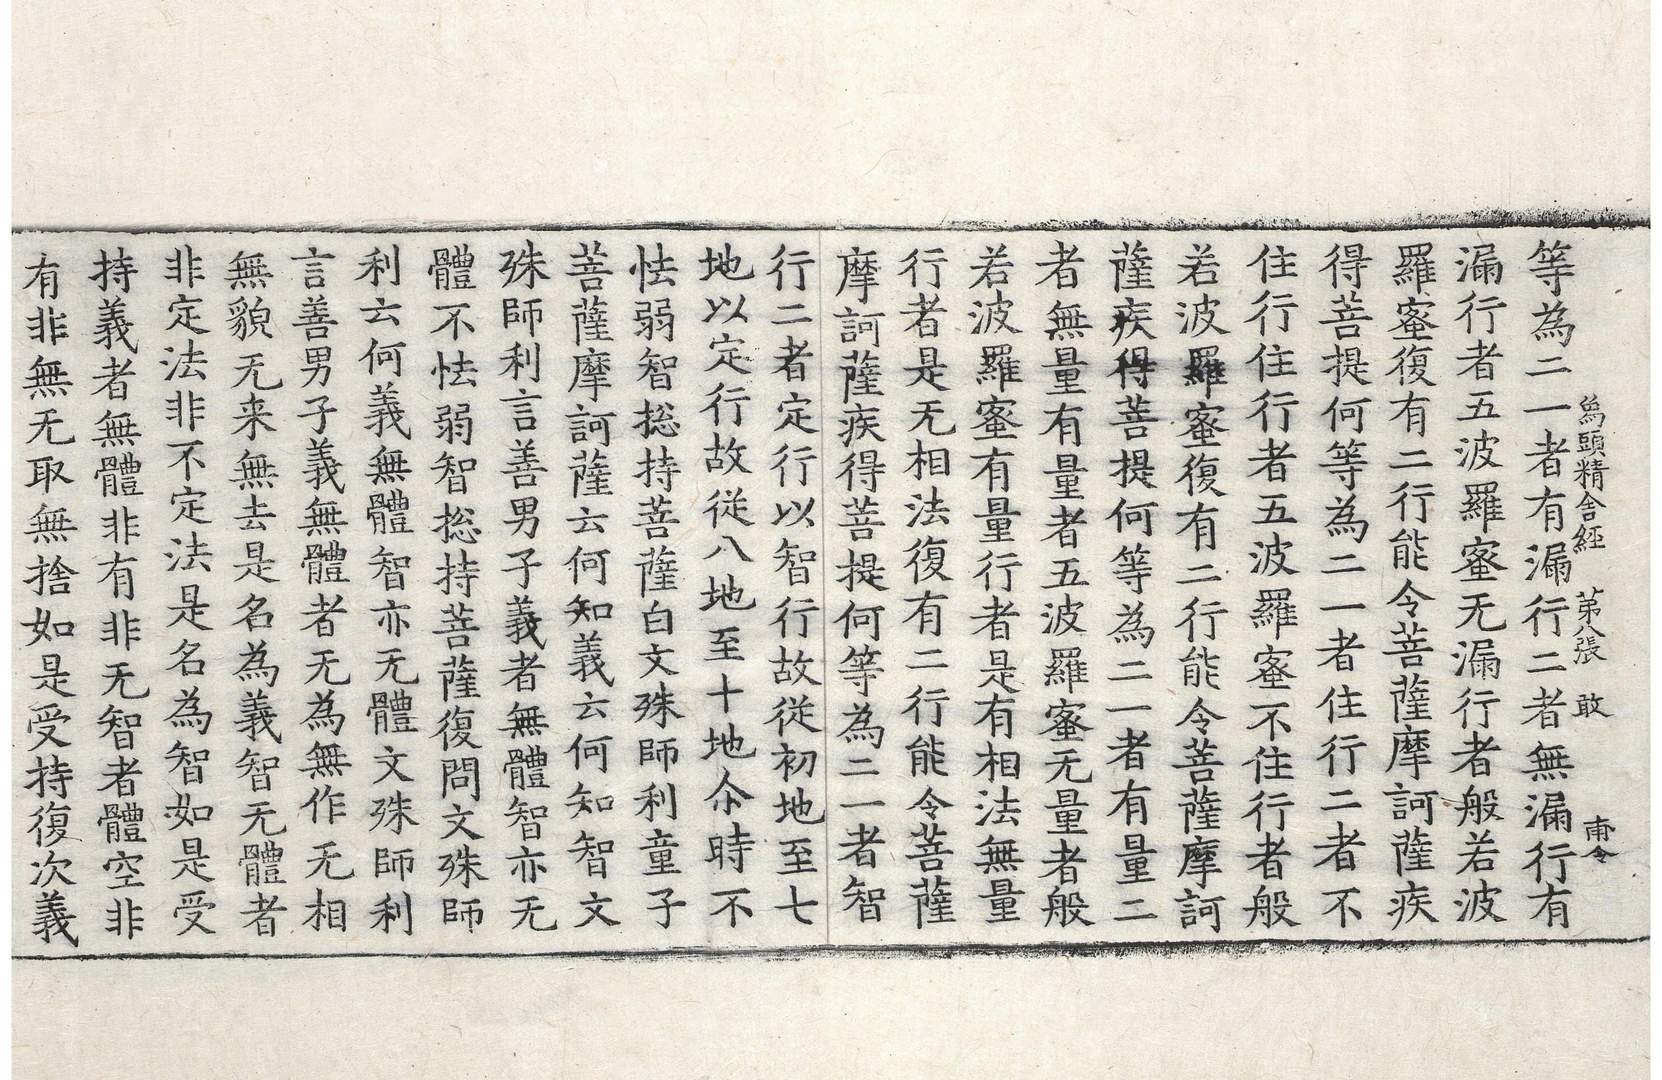 為頭精舍經 第八張 敢
等為二一者有漏行二者無漏行有
漏行者五波羅蜜无漏行者般若波
羅蜜復有二行能令菩薩摩訶薩疾
得菩提何等為二一者住行二者不
住行住行者五波羅蜜不住行者般
若波羅蜜復有二行能令菩薩摩訶
薩疾得菩提何等為二一者有量二
者無量有量者五波羅蜜无量者般
若波羅蜜有量行者是有相法無量
行者是无相法復有二行能令菩薩
摩訶薩疾得菩提何等為二一者智
行二者定行以智行故從初地至七
地以定行故從八地至十地尒時不
怯弱智捴持菩薩白文殊師利童子
菩薩摩訶薩云何知義云何知智文
殊師利言善男子義者無體智亦无
體不怯弱智捴持菩薩復問文殊師
利云何義無體智亦无體文殊師利
言善男子義無體者无為無作无相
無貌无来無去是名為義智无體者
非定法非不定法是名為智如是受
持義者無體非有非无智者體空非
有非無无取無捨如是受持復次義